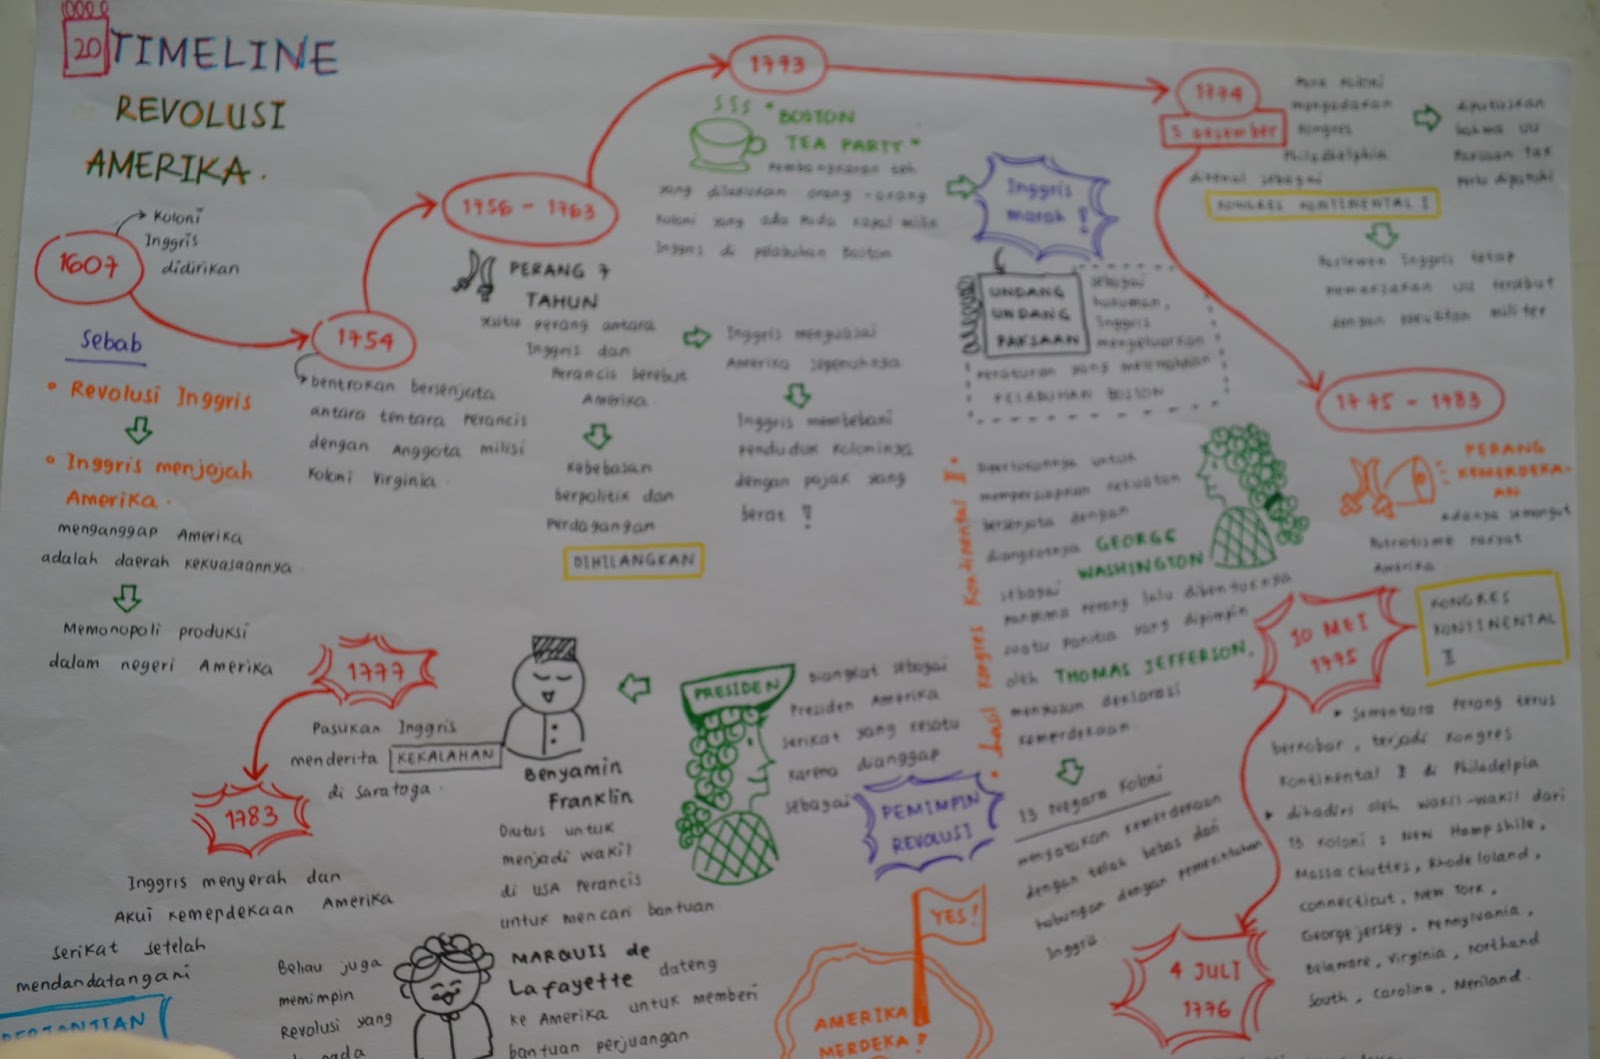 20 TIMELINE
REVOLUSI
AMERIKA.
1607
Koloni
Inggris
didirikan
Sebab
• Revolusi Inggris
• Inggris menjajah
Amerika.
menganggap Amerika
adalah daerah kekuasaannya
Memonopoli produksi
dalam negeri Amerika
1754
bentrokan bersenjata
antara tentara Perancis
dengan Anggota milisi
Koloni Virginia.
1756 - 1763
PERANG 7
TAHUN
Yaitu perang antara
Inggris dan
Perancis berebut
Amerika
Kebebasan
berpolitik dan
Perdagangan
DIHILANGKAN
Inggris menguasai
Amerika sepenuhnya
Inggris membebani
penduduk Koloninya
dengan pajak yang
berat !
1773
"BOSTON
TEA PARTY"
Pembongkaran teh
yang dilakukan orang-orang
Koloni yang ada pada kapal milik
Inggris di pelabuhan Boston
Inggris
marah !
UNDANG
UNDANG
PAKSAAN
sebagai
hukuman,
Inggris
mengeluarkan
Peraturan yang
PELABUHAN BOSTON
1774
5 Desember
mengadakan
Kongres
Philadelphia
dikenal sebagai
KONGRES KONTINENTAL I
diputuskan
bahwa UU
Paksaan
Parlemen Inggris tetap
memaksakan UU tersebut
dengan militer
1775 - 1783
PERANG
KEMERDEKA-
AN
Adanya semangat
Patriotisme rakyat
Amerika
10 MEI
1775
KONGRES
KONTINENTAL
II
• Sementara Perang terus
berkobar, terjadi Kongres
Kontinental II di Philadelpia
• dihadiri oleh wakil-wakil dari
13 Koloni : New Hampshile,
Massachuttes, Rhode Island,
Connecticut, New York,
George jersey, Pennylvania,
Delaware, Virginia, northand
South, Carolina, Meriland.
• hasil Kongres Kontinental II •
Diperlukannya untuk
mempersiapkan kekuatan
bersenjata dengan
diangkatnya GEORGE
WASHINGTON
sebagai
panglima Perang lalu dibentuknya
suatu Panitia yang dipimpin
oleh THOMAS JEFFERSON,
menyusun deklarasi
Kemerdekaan
13 Negara Koloni
menyatakan kemerdekaan
dengan telah bebas dari
hubungan dengan pemerintahan
Inggris.
4 JULI
1776
AMERIKA
MERDEKA !
YES!
PRESIDEN
Diangkat sebagai
Presiden Amerika
serikat yang kesatu
karena dianggap
sebagai
PEMIMPIN
REVOLUSI
Benyamin
Franklin
Diutus untuk
menjadi wakil
di USA Perancis
untuk mencari bantuan
MARQUIS de
Lafayette dateng
ke Amerika untuk memberi
bantuan perjuangan
Beliau juga
memimpin
Revolusi yang
1777
Pasukan Inggris
menderita KEKALAHAN
di Saratoga.
1783
Inggris menyerah dan
Akui Kemerdekaan Amerika
serikat setelah
mendandatangani
PERJANJIAN